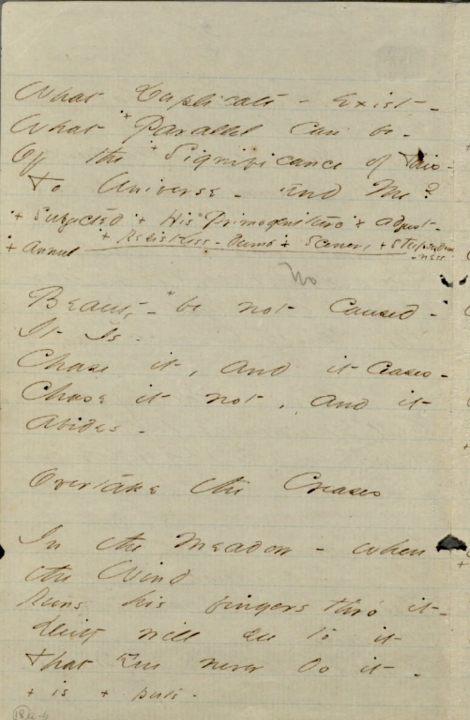 What Duplicate - exist -
What + Parallel can be -
Of the + Significance of this -
To Universe - and Me?
+ Subjected + His Primogenitive + adjust -
+ resistless - dumb + Scenes, + Stupendousness
+ Annul
No
Beauty - + be not caused -
It Is -
Chase it, and it ceases -
Chase it not, and it
Abides -
Overtake the Creases
In the Meadow - when
the Wind
Runs his fingers thro' it -
Deity will see to it
That You never do it -
+ is + puts -